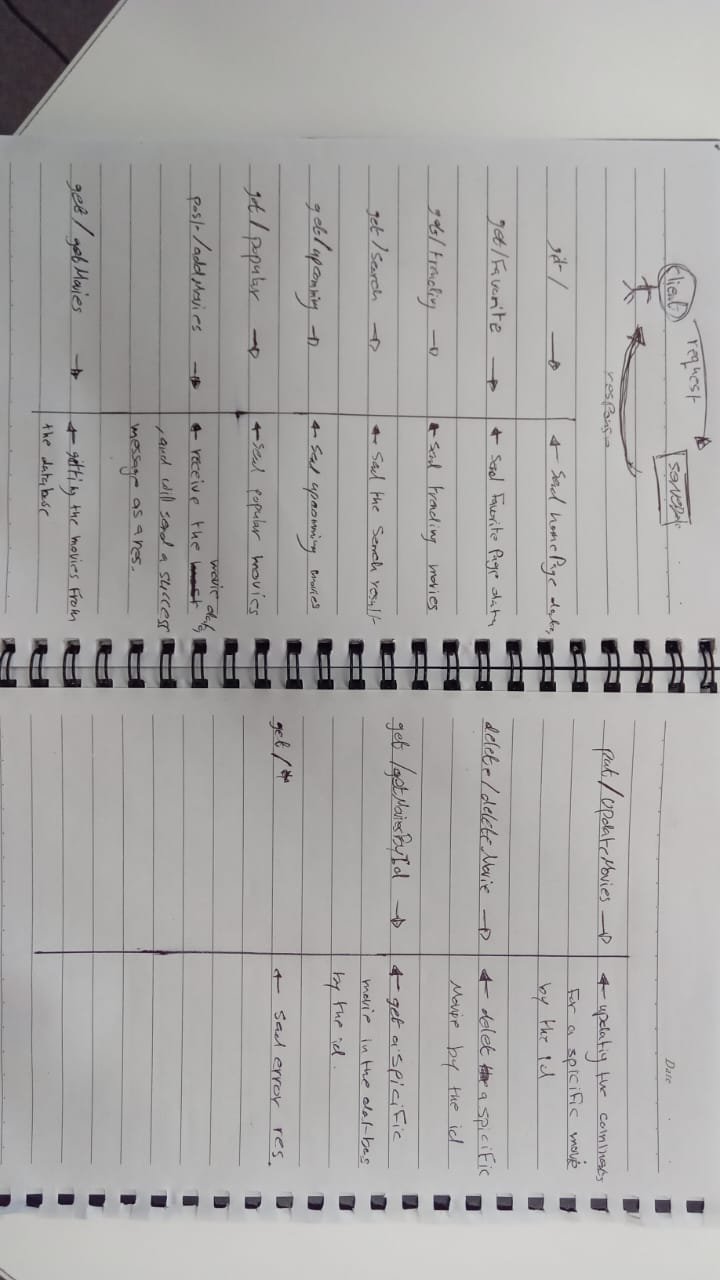 Client
request
server
response
get / → ← send homePage data
get/Favorite → ← send Favorite Page data
get/trending → ← send trending movies
get/search → ← send the search result
get/upcoming → ← send upcomming movies
get/popular → ← send popular movies
post/addMovies → ← receive the movie data
, and will send a success
message as a res.
get/getMovies → ← getting the movies from
the database
Date
put/UpdateMovies → ← updating the comments
for a spicific movie
by the id
delete/deleteMovie → ← delet a spicific
Movie by the id
get/getMoviesById → ← get a spicific
movie in the dat-bas
by the id.
get/* ← send error res.